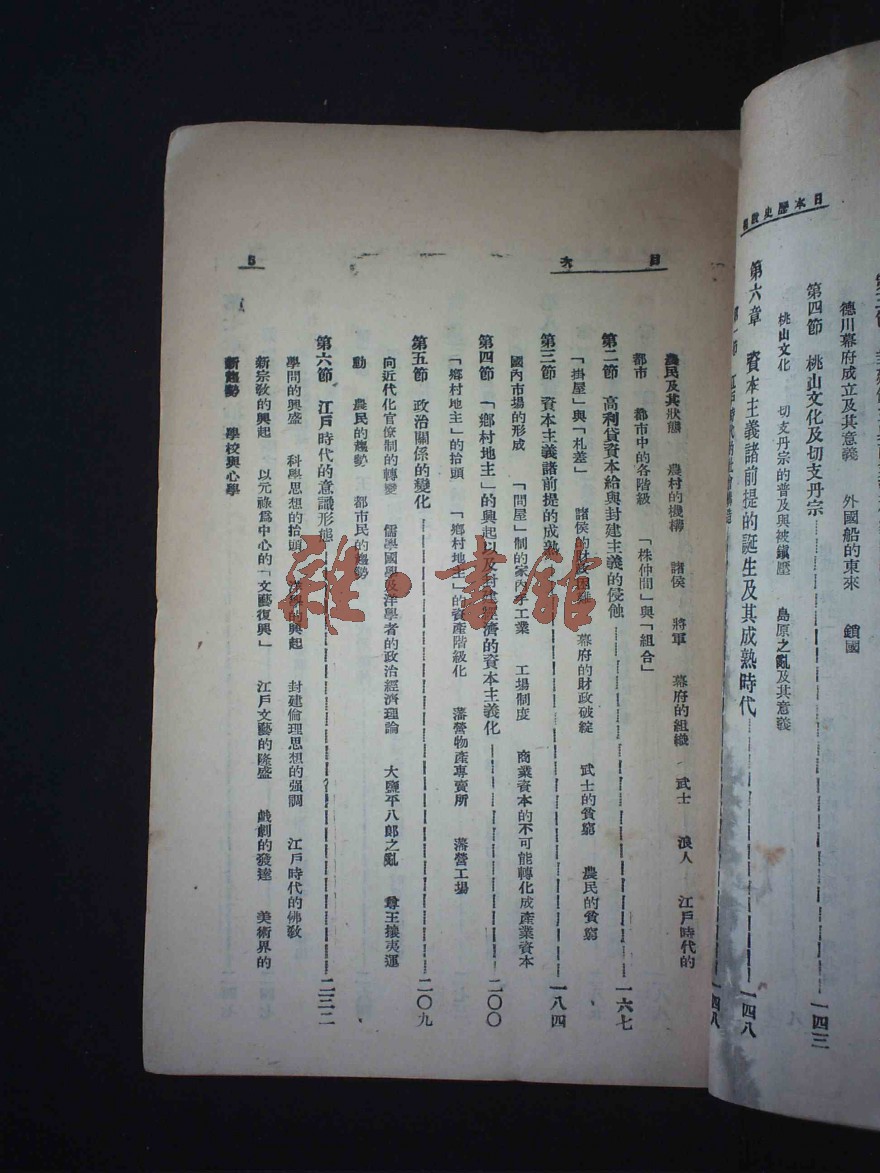 日本歷史教程
德川幕府成立及其意義　外國船的東來　鎖國
第四節　桃山文化及切支丹宗　一四三
桃山文化　切支丹宗的普及與被鎮壓　島原之亂及其意義
第六章　資本主義諸前提的誕生及其成熟時代　一四八
第一節　江戶時代的社會構造　一四八
目次
5
農民及其狀態　農村的機構　諸侯　將軍　幕府的組織　武士　浪人　江戶時代的
都市　都市中的各階級　「株仲間」與「組合」
第二節　高利貸資本給與封建主義的侵蝕　一六七
「掛屋」與「札差」　諸侯的財政困難　幕府的財政破綻　武士的貧窮　農民的貧窮
第三節　資本主義諸前提的成熟　一八四
國內市場的形成　「問屋」制的家內手工業　工場制度　商業資本的不可能轉化成產業資本
第四節　「鄉村地主」的興起以及封建經濟的資本主義化　二〇〇
「鄉村地主」的抬頭　「鄉村地主」的資產階級化　藩營物產專賣所　藩營工場
第五節　政治關係的變化　二〇九
向近代化官僚制的轉變　儒學國學及洋學者的政治經濟理論　大鹽平八郎之亂　尊王攘夷運
動　農民的趨勢　都市民的趨勢
第六節　江戶時代的意識形態　二三二
學問的興盛　科學思想的抬頭　洋學的興起　封建倫理思想的强調　江戶時代的佛教
新宗教的興起　以元祿爲中心的「文藝復興」　江戶文藝的隆盛　戲劇的發達　美術界的
新趨勢　學校與心學
雜·書館